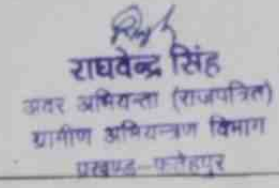 राघवेन्द्र सिंह
अवर अभियन्ता (राजपत्रित)
ग्रामीण अभियन्त्रण विभाग
प्रखण्ड-फतेहपुर